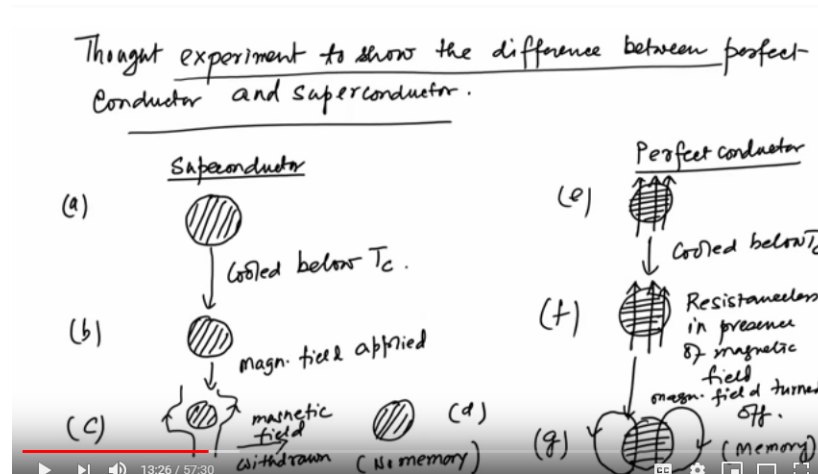 Thought experiment to show the difference between perfect
Conductor and Superconductor.
Supeconductor
(a)
Cooled below Tc.
(b)
magn. field applied
(c)
magnetic
field
withdrawn
(d)
(No memory)
Perfect conductor
(e)
Cooled below Tc
(f)
Resistanceless
in presence
of magnetic
field
magn. field turned
off.
(g)
(Memory)
13:26 / 57:30
CC